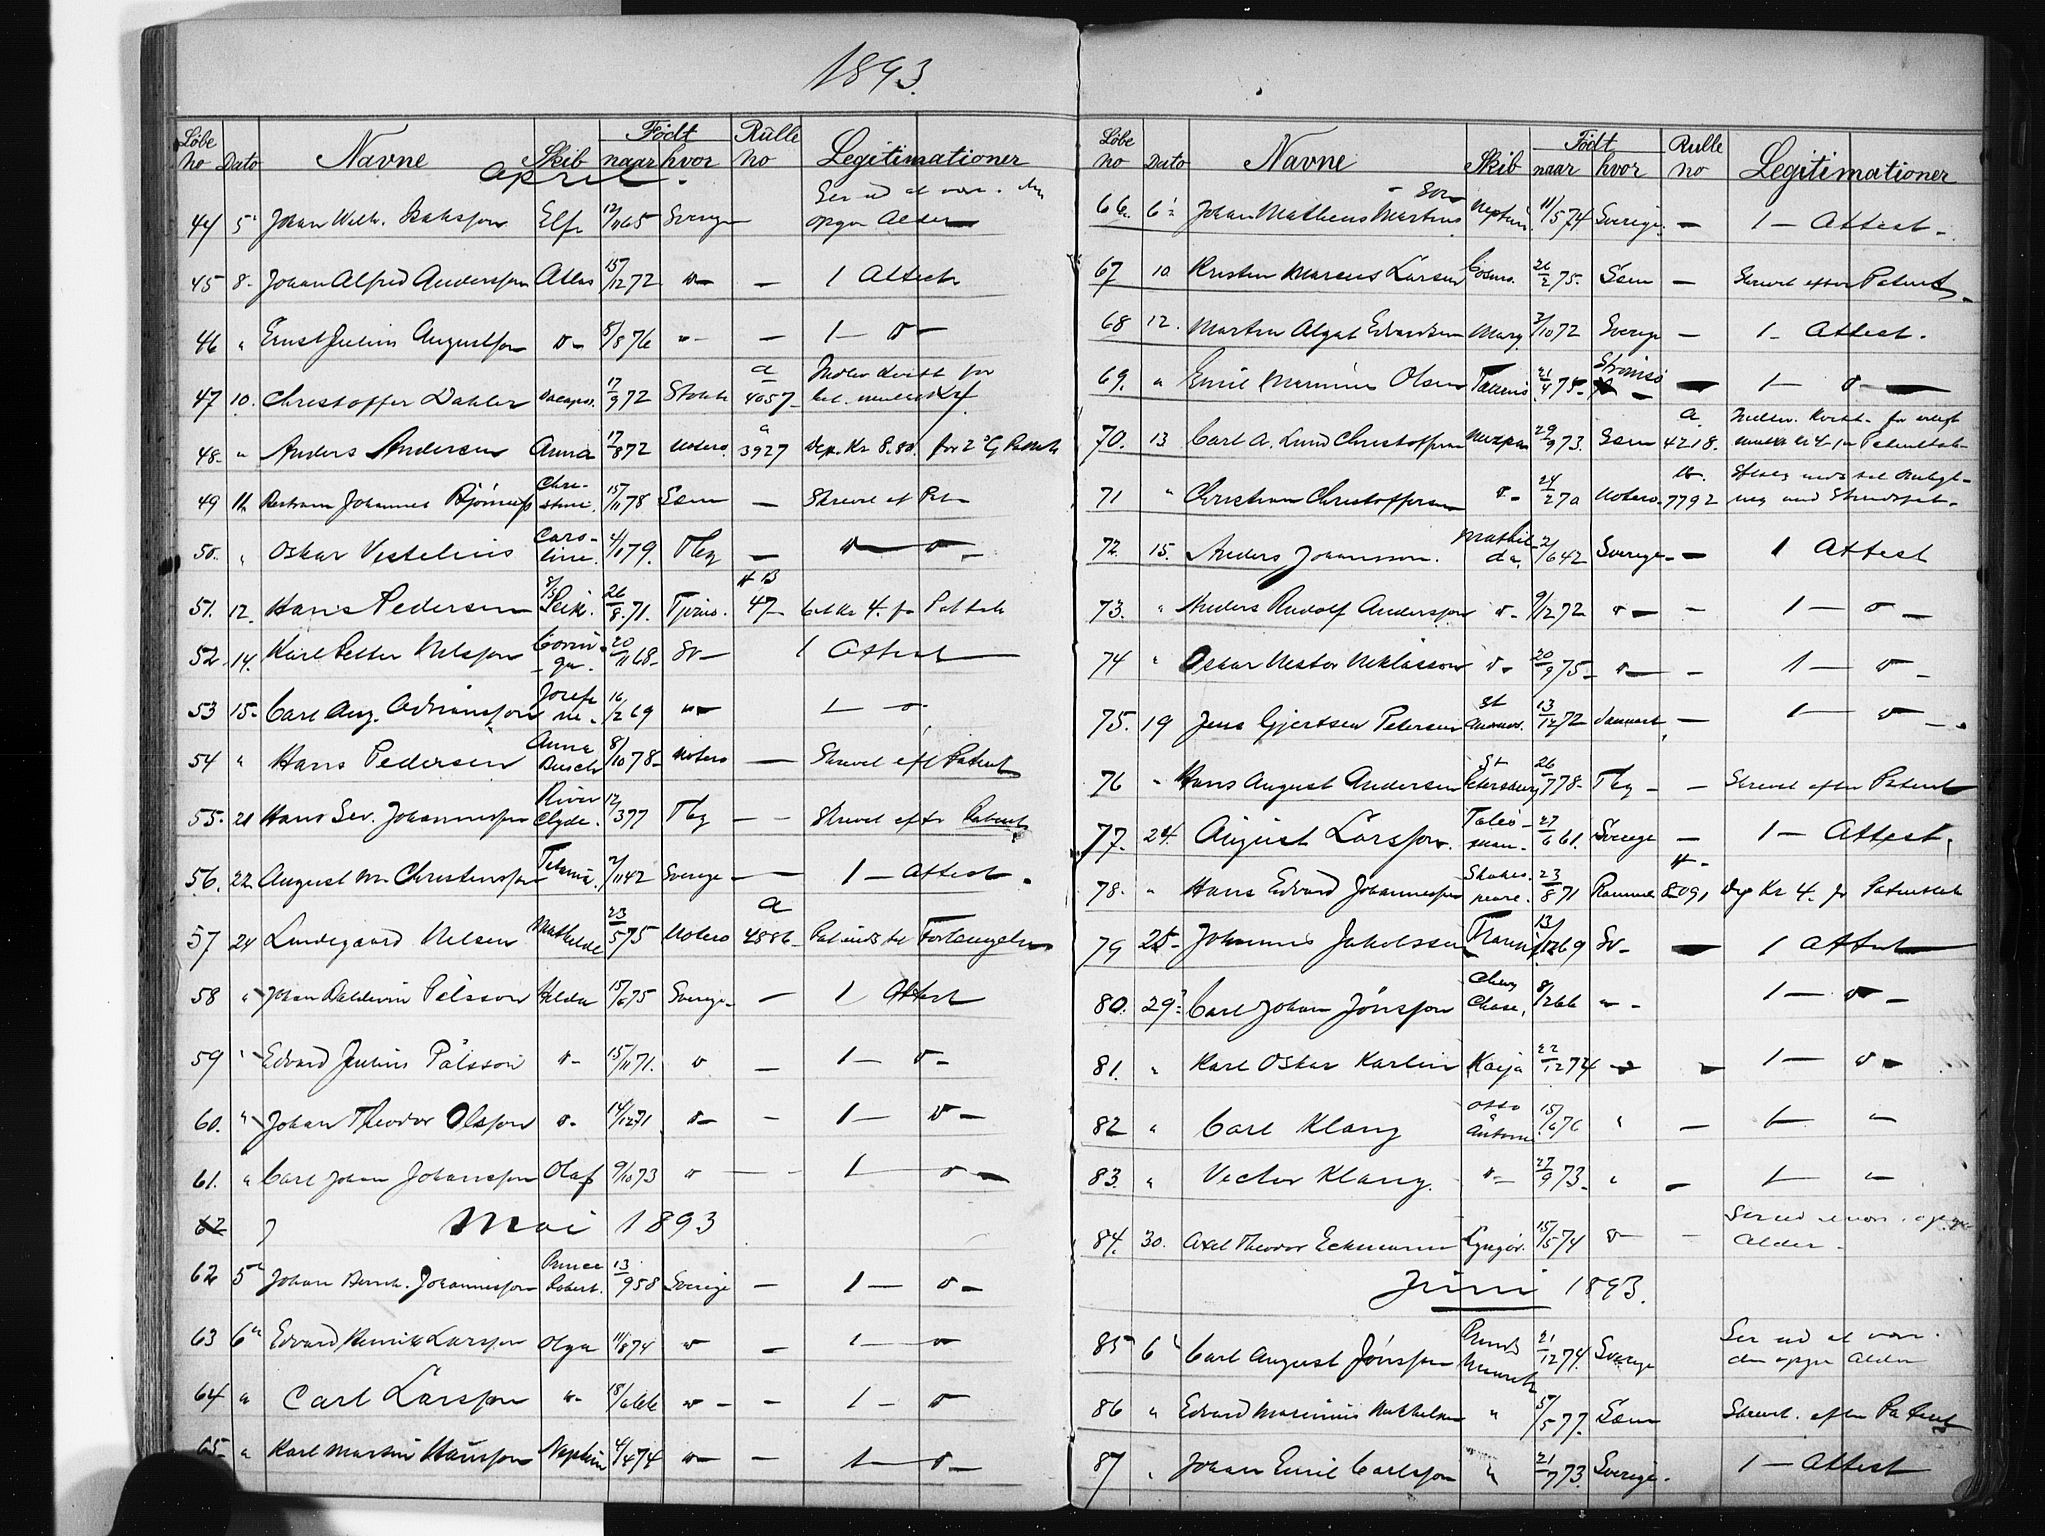 1893.
Løbe no Dato Navne Skib Født naar hvor Rulle no Legitimationer
April.
44 5 Johan Wilh. Isaksson Elf 12/11 65 Sverige Ser ud at være den opgiv Alder
45 8 Johan Alfred Andersson Atlas 15/12 72 " — 1 Attest
46 " Ernst Julius Augustson " 5/8 76 " — 1 — " —
47 10. Christoffer Dahler 17/9 72 Stokke a 4057
48 " Anders Andersen Anna 17/8 72 Nøterø a 3927 Dep. Kr 8.80 for
49 11 Johannes Chri-stine. 15/11 78 Sem — Skrevet ef Pat
50. " Oskar Vestelius Caro-line. 4/1 79. Tbg — " — " —
51. 12. Hans Pedersen 26/8 71. Tjømø. 47 Kr 4. f
52 14. Karl Petter Nilsson 20/11 68 Sv — 1 Attest
53 15 Carl Aug. Adriansson Josefi-ne. 16/2 69 " — 1 — " —
54 " Hans Pedersen Anna Busch 8/10 78 Nøterø — Skrevet eft Patent
55. 21 Hans Sev. Johannessen River Clyde. 12/3 77 Tbg — — Skrevet efter Patent
56. 22 August M. Christensson 2/11 42 Sverige — — 1 — Attest.
57 24 Lindegaard Nilsen Mathilde 23/5 75 Nøterø a 4886 Forlængelse
58 " Johan Baldevin Pålsson Hilda 15/6 75 Sverige — 1 Attest
59 " Edvard Julius Pålsson " 15/11 71. " — 1 — " —
60. " Johan Theodor Olsson " 14/12 71 " — — 1 — " —
61. " Carl Johan Johansson Olaf 9/10 73 " — — 1 — " —
62
Mai 1893
62 5 Johan Bernh. Johannesson Prince Robert. 13/9 58 Sverige — 1 — " —
63 6 Edvard Henrik Larsson Olga 11/8 74 " — 1 — " —
64 " Carl Larsson " 18/6 66 " — — 1 — "
65 " Karl Martin Hansson Neptun 4/4 74 " — — 1 — " —
Løbe no Dato Navne Skib Født naar hvor Rulle no Legitimationer
66. 6 Johan Matheus Martins-son Neptun 11/5 74 Sverige — 1 — Attest —
67 10 Kristen Marcus Larsen 26/2 75. Sem — Skrevet efter Patent
68 12. Martin Algot Edvardsen Mary 3/10 72 Sverige — 1 — Attest.
69. " Emil Marinius Olsen 21/4 75 Strømsø — 1 — " —
70. 13 Carl A. Lund Christoffersen 29/9 73. Sem a. 4218.
71 " Christian Christoffersen " 24/2 70 Nøterø. 7792
72. 15. Anders Johansson. Mathil-da. 2/6 42 Sverige — 1 Attest
73. " Anders Rudolf Andersson " 9/12 72 " — — 1 — " —
74 " Oskar Nestor Niklasson " 20/9 75 " — — 1 — " —
75. 19 Jens Gjertsen Petersen St 13/12 72 Danmark, — 1 — " —
76 " Hans August Andersen St Petersburg 26/7 78 Tbg — — Skrevet efter Patent
77. 24. August Larsson. Talis-man 27/6 61. Sverige — 1 — Attest.
78. " Hans Edvard Johannessen Shakes-peare. 23/8 71 8091 Dep Kr 4. f
79 25 Johannes Jakobsson 13/12 69 Sv — 1 Attest
80. 29 Carl Johan Jönsson Chevy Chase, 8/2 66 " — 1 — " —
81. " Karl Oskar Karlin Kaija 22/12 74 " — 1 — " —
82 " Carl Klang Otto Anton 15/6 76 " — 1 — "
83. " Victor Klang. " 27/9 73 " — 1 — "
84. 30. Axel Theodor Eckmann Lyngør. 15/5 74 " — — Ser ud at være opgiv Alder.
Juni 1893.
85 6 Carl August Jönsson 21/12 74. Sverige Ser ud at være den opgiv Alder
86 " Edvard Marinius " 5/5 77. Sem Skrevet. efter Patent
87 " Johan Emil Carlsson " 21/7 73. Sverige. 1 — Attest